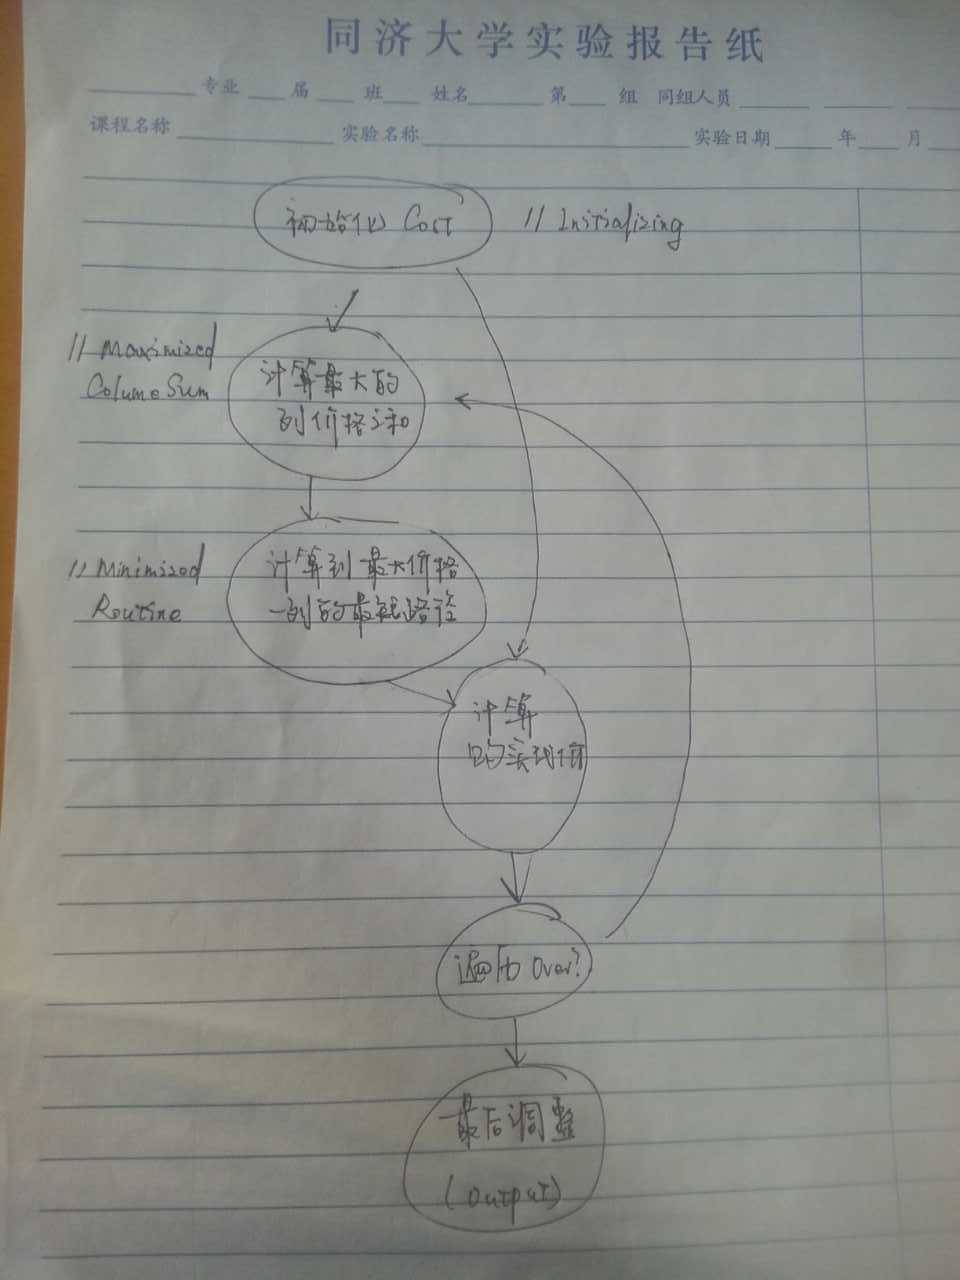 同济大学实验报告纸
专业 届 班 姓名 第 组 同组人员
课程名称 实验名称 实验日期 年 月
初始化 Cost // Initializing
// Maximized
Colume Sum
计算最大的
列价格之和
// Minimized
Routine
计算到最大价格
一列的最短路径
计算
购买代价
遍历 Over?
最后调整
(output)